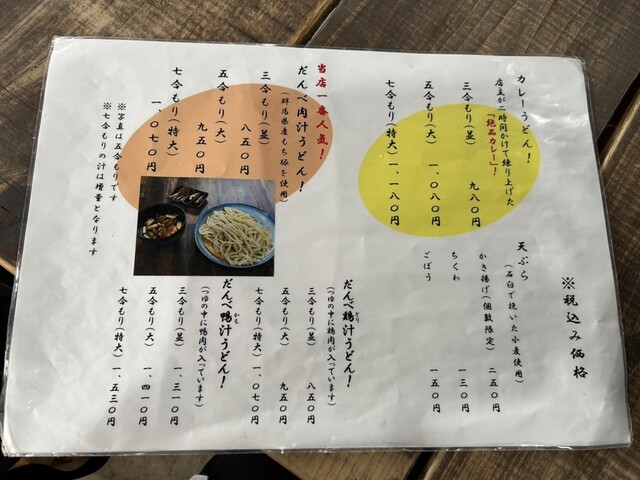 ※税込み価格
カレーうどん！
店主が二時間かけて練り上げた
「絶品カレー」！
三合もり(並) 九八〇円
五合もり(大) 一、〇八〇円
七合もり(特大) 一、一八〇円
天ぷら
(石臼で挽いた小麦使用)
かき揚げ(個数限定) 二五〇円
ちくわ 一三〇円
ごぼう 一五〇円
当店一番人気！
だんべ肉汁うどん！
(群馬県産もち豚を使用)
三合もり(並) 八五〇円
五合もり(大) 九五〇円
七合もり(特大) 一、〇七〇円
※写真は五合もりです
※七合もりの汁は増量となります
だんべ鶏汁うどん！
とり
(つゆの中に鶏肉が入っています)
三合もり(並) 八五〇円
五合もり(大) 九五〇円
七合もり(特大) 一、〇七〇円
だんべ鴨汁うどん！
かも
(つゆの中に鴨肉が入っています)
三合もり(並) 一、三一〇円
五合もり(大) 一、四一〇円
七合もり(特大) 一、五三〇円